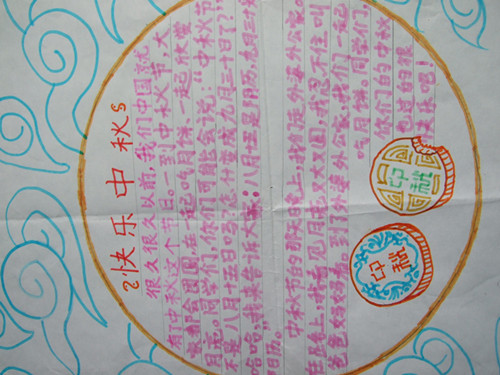 快乐中秋
很久很久以前,我们中国就
有了中秋这个节日。一到中秋节,大
家都会团圆,在一起吃月饼、一起
月亮。同学们,你们可能会说:“中秋节
不是八月十五日吗?怎么变成九月三十日了?”
哈哈,我来告诉大家:八月十五是阴历,九月三十
阳历。
中秋节的那天晚上,我们 外婆外公家。
在路上,我看见月亮又大又圆,我忍不住叫
爸爸妈妈看。到了外婆外公家,我们一起
吃月饼。同学们,
你们的中秋
也过的很
快乐吧!
中秋